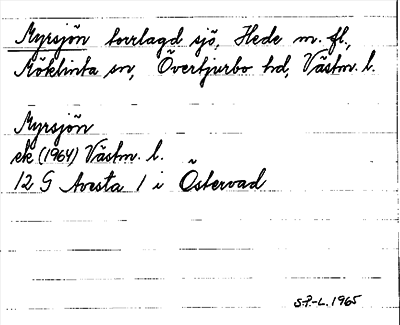 Myrsjön torrlagd sjö, Hede m. fl.,
Möklinta sn, Övertjurbo hd, Västm. l.
Myrsjön
ek (1964) Västm. l.
12 G Avesta 1 i Östervad
S.P.-L. 1965